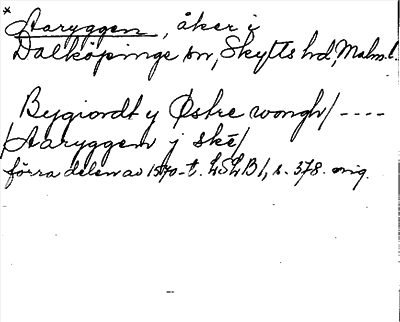 × Aaryggen, åker i
Dalköpinge sn, Skytts hd, Malm. l.
Bygiordt y Østre wongh/ ----
/Aaryggem j ske/
förra delen av 1570-t. LSLB 1, s. 378. orig.